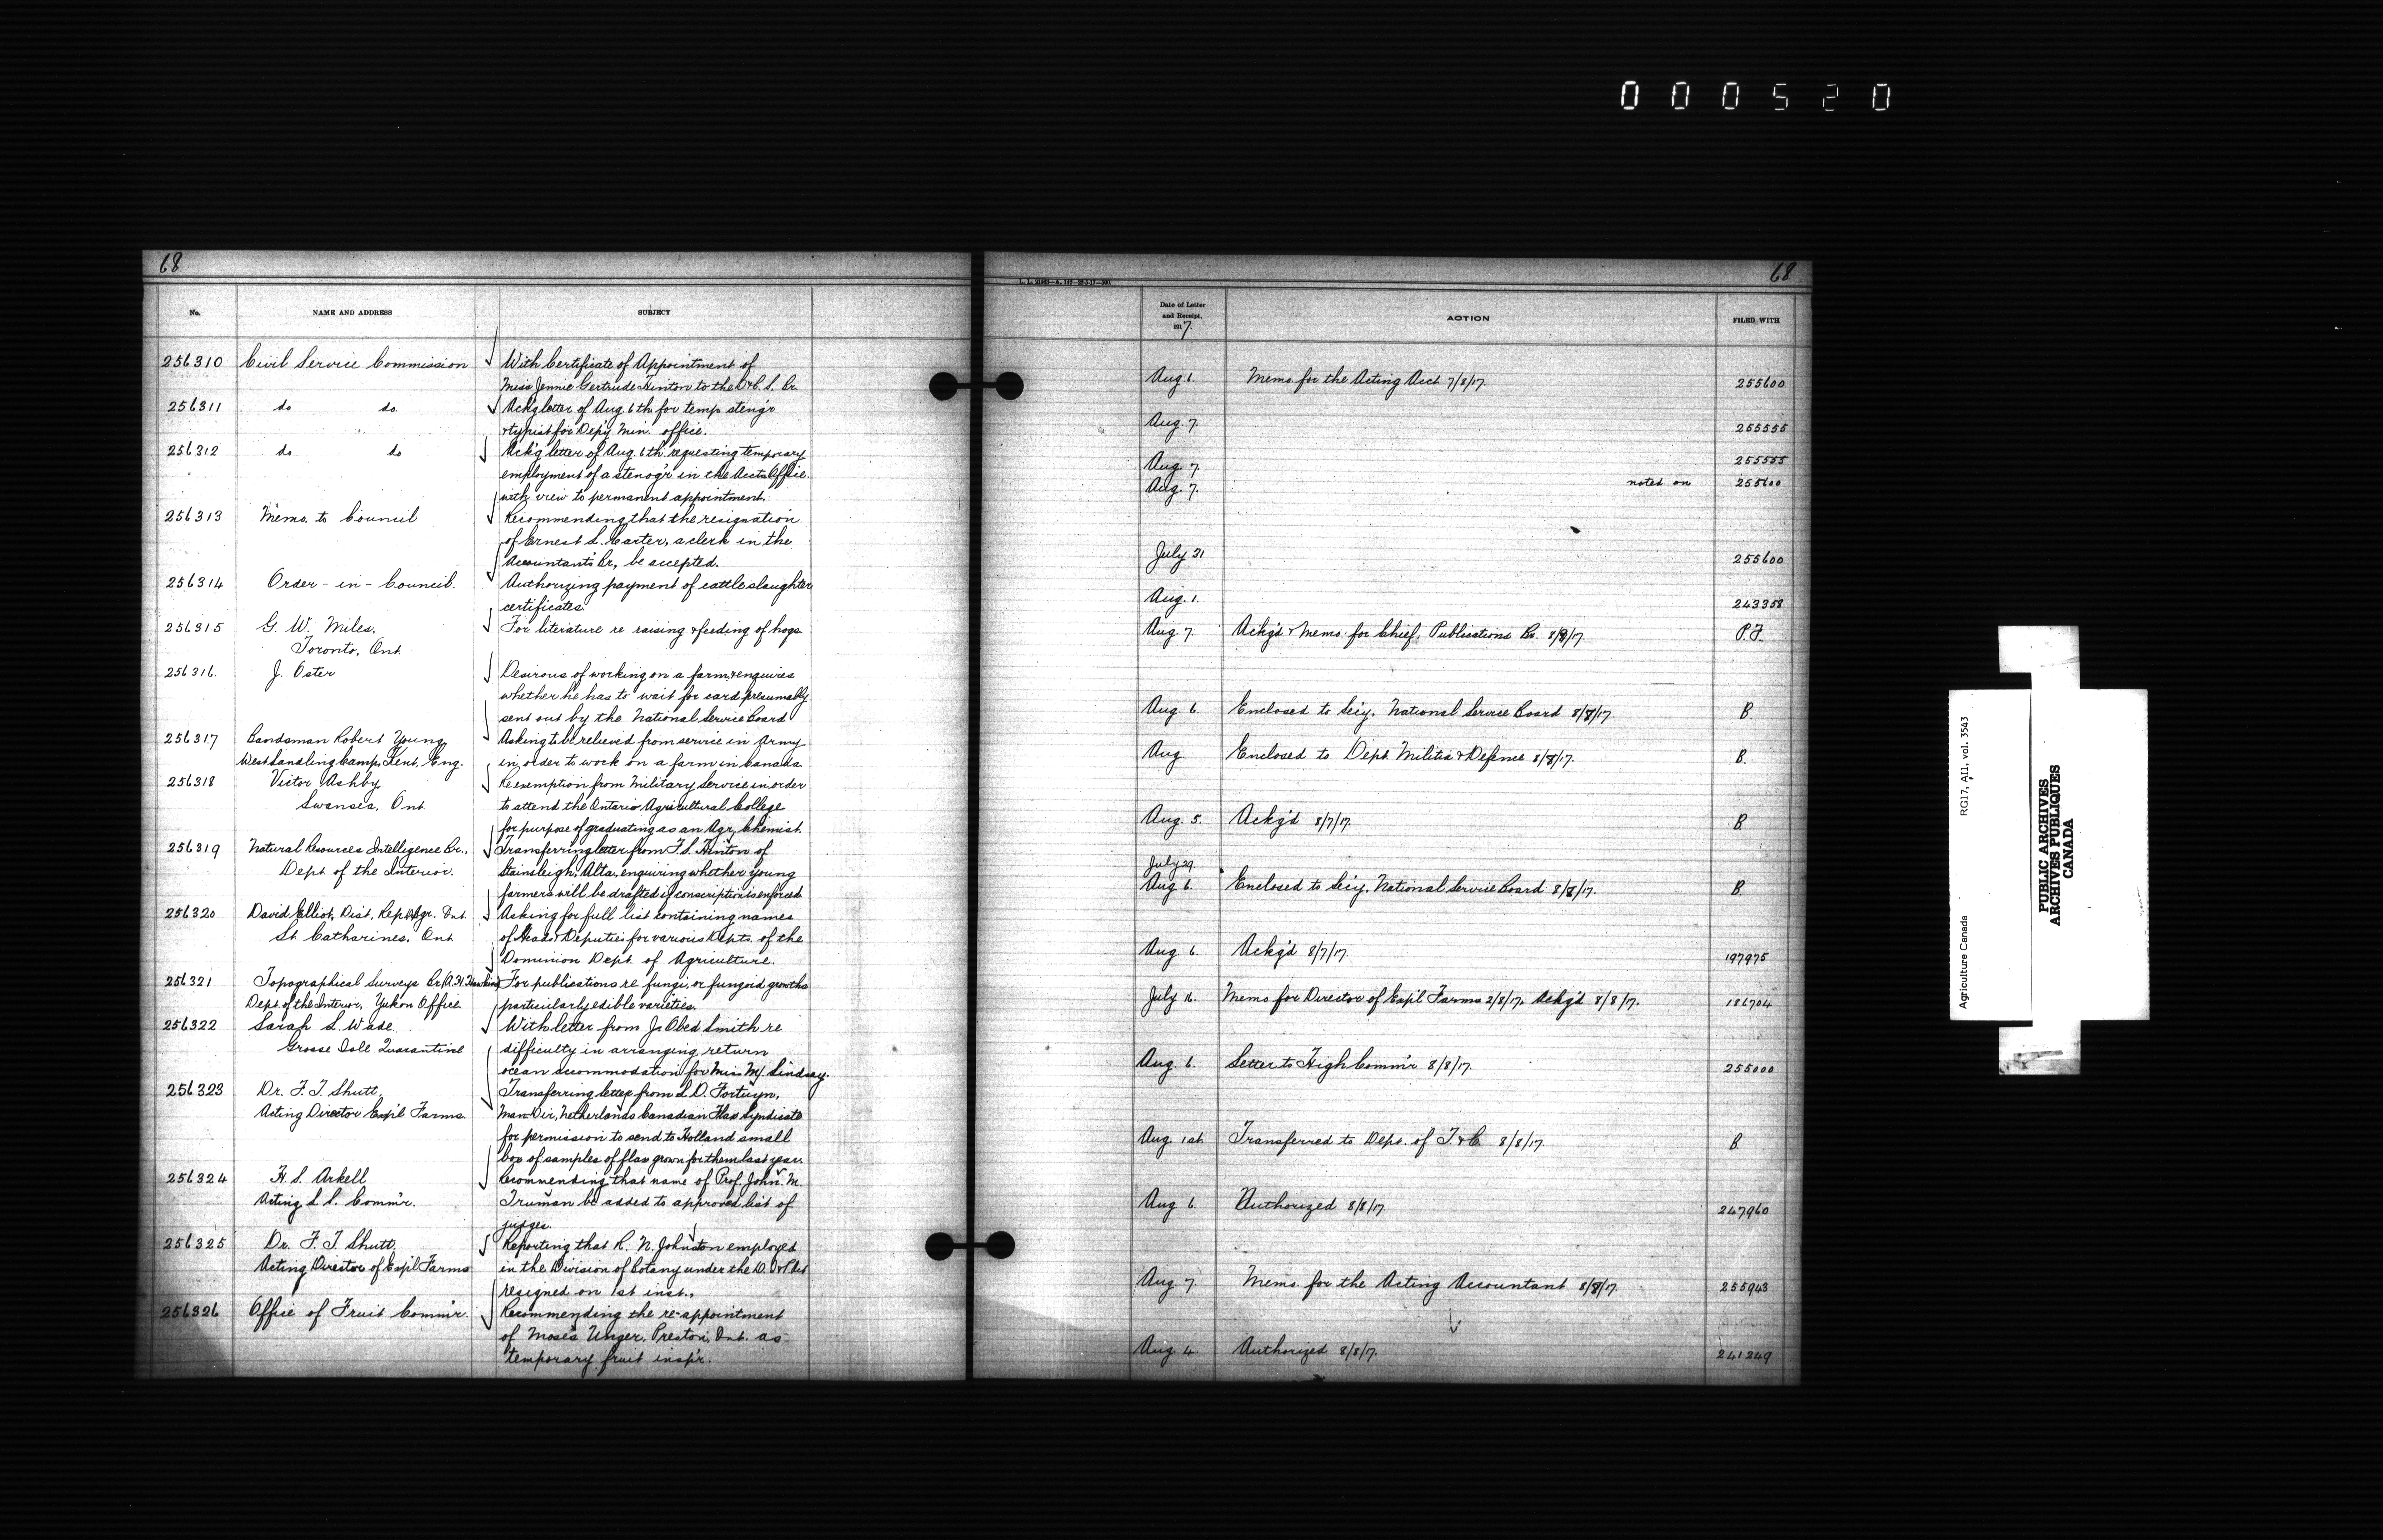 000520
68
No.
NAME AND ADDRESS
SUBJECT
256310 Civil Service Commission With Certificate of Appointment of
Miss Jennie Gertrude Hinton to the D. & C. S. Br.
256311 do do Ackg letter of Aug. 6th for temp. steng'r
& typist for Dep'y Min. office.
256312 do do Ack'g letter of Aug. 6th requesting temporary
employment of a stenog'r in the Accts Office
with view to permanent appointment.
256313 Memo. to Council Recommending that the resignation
of Ernest L. Carter, a clerk in the
Accountants Br., be accepted.
256314 Order-in-Council. Authorizing payment of cattle slaughter
certificates.
256315 G. W. Miles, For literature re raising & feeding of hogs.
Toronto, Ont.
256316. J. Oster Desirous of working on a farm & enquires
whether he has to wait for card presumably
sent out by the National Service Board
256317 Bandsman Robert Young Asking to be relieved from service in Army
West Sandling Camp, Kent, Eng. in order to work on a farm in Canada
256318 Victor Ashby Re exemption from Military Service in order
Swansea, Ont. to attend the Ontario Agricultural College
for purpose of graduating as an Agr. Chemist.
256319 Natural Resources Intelligence Br., Transferring letter from F. S. Hinton of
Dept of the Interior. Stainsleigh, Alta, enquiring whether young
farmers will be drafted if conscription is enforced
256320 David Elliot, Dist. Rep. Agr. Ont. Asking for full list containing names
St. Catharines, Ont. of Heads & Deputies for various Depts. of the
Dominion Dept. of Agriculture.
256321 Topographical Surveys Br. (A. H. Hawkins) For publications re fungi, or fungoid growths
Dept. of the Interior, Yukon Office particularly edible varieties.
256322 Sarah S. Wade With letter from J. Obed Smith re
Grosse Isle Quarantine difficulty in arranging return
ocean accommodation for Miss M. Lindsay.
256323 Dr. F. T. Shutt, Transferring letter from L. D. Fortuyn,
Acting Director Exp'l Farms. Man. Dir., Netherlands Canadian Flax Syndicate
for permission to send to Holland small
box of samples of flax grown for them last year.
256324 H. S. Arkell Recommending that name of Prof. John M.
Acting L. S. Comm'r. Truman be added to approved list of
judges.
256325 Dr. F. T. Shutt, Reporting that R. N. Johnston employed
Acting Director of Exp'l Farms in the Division of Botany under the D. I. & P. Act
resigned on 1st inst.,
256326 Office of Fruit Comm'r. Recommending the re-appointment
of Moses Unger, Preston, Ont. as
temporary fruit insp'r.
68
Date of Letter
and Receipt.
1917.
ACTION
FILED WITH
Aug 6. Memo. for the Acting Acct 7/8/17. 255600
Aug. 7. 255555
Aug. 7. 255555
Aug. 7. noted on 255600
July 31 255600
Aug. 1. 243358
Aug. 7. Ackg'd & Memo. for Chief, Publications Br. 8/8/17. P.F.
Aug 6. Enclosed to Sec'y. National Service Board 8/8/17. B.
Aug Enclosed to Dept. Militia & Defence 8/8/17. B.
Aug 5. Ackg'd 8/7/17. B.
July 29
Aug 6. Enclosed to Sec'y. National Service Board 8/8/17. B.
Aug 6. Ackg'd 8/7/17. 197975
July Memo for Director of Exp'l Farms 2/8/17. Ackg'd 8/8/17. 186704
Aug. 6. Letter to High Comm'r 8/8/17. 255000
Aug 1st. Transferred to Dept. of T. & C. 8/8/17. B.
Aug 6. Authorized 8/8/17. 247960
Aug 7. Memo. for the Acting Accountant 8/8/17. 255943
Aug 4. Authorized 8/8/17. 241249
Agriculture Canada RG17, A11, vol. 3543
PUBLIC ARCHIVES
ARCHIVES PUBLIQUES
CANADA